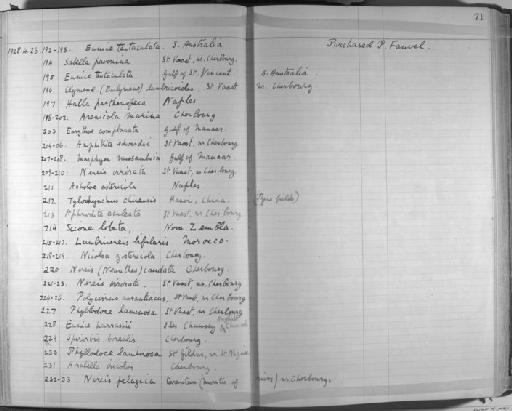 21
1928.4.25.192-193. Eunice tentaculata. S. Australia Purchased P. Fauvel.
194 Sabella pavonina St Vaast, nr. Cherbourg.
195 Eunice tentaculata Gulf of St Vincent S. Australia.
196 Clymene (Euclymene) lumbricoides. St Vaast nr. Cherbourg
197 Halla parthenopeia Naples
198-202. Arenicola marina Cherbourg
203 Eurythoe complanata Gulf of Manaar.
204-06. Amphitrite edwardsi St Vaast, nr Cherbourg
207-208. Gulf of Manaar
209-210. Nereis irrorata St Vaast, nr Cherbourg.
211 Astericola Naples
212 Tylorrhynchus chinensis Hanoi, China. (Type fields)
213 Aphrodite aculeata St Vaast, nr Cherbourg
214 Scione lobata, Nova Zembla.
215-217. Lumbrinereis bifilaris Morocco.
218-219. Nicolea zostericola Cherbourg.
220 Nereis (Neanthes) caudata Cherbourg.
221-23. Nereis irrorata. St Vaast, nr. Cherbourg
224-26. Polycirrus aurantiacus. St Vaast, nr Cherbourg
227 Phyllodoce laminosa St Vaast, nr Cherbourg
228 Eunice harassii Iles Chausey
229 Spirorbis borealis Cherbourg.
230 Phyllodoce laminosa St Gildas, nr St Nazaire
231 Arabella Cherbourg
232-33 Nereis pelagica nr Cherbourg.